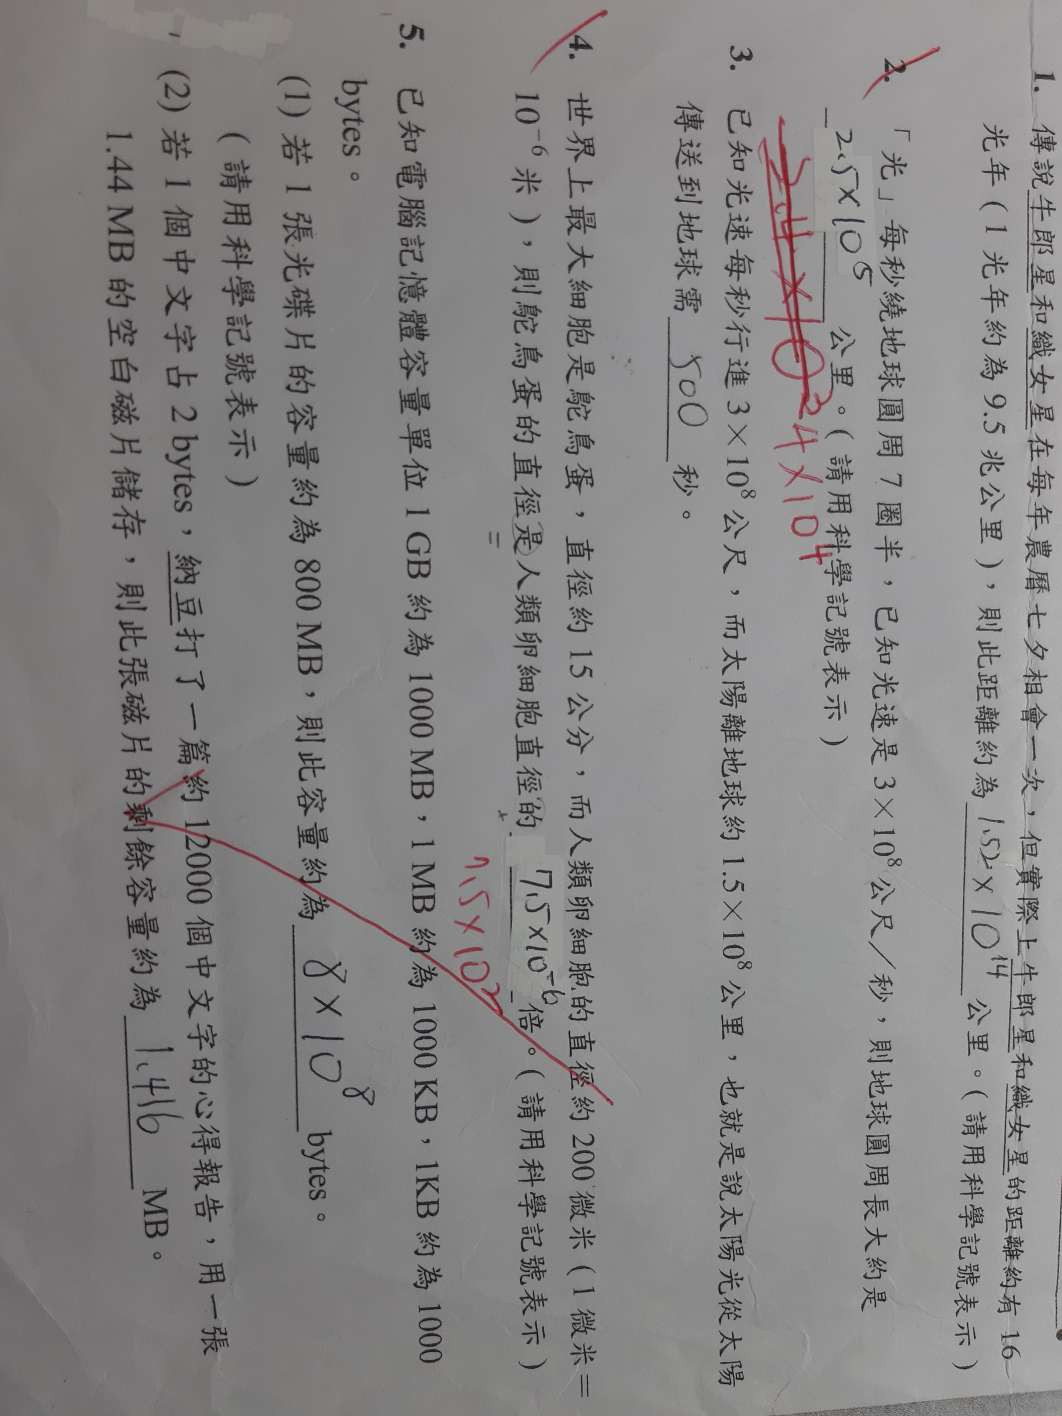 1. 傳說牛郎星和織女星在每年農曆七夕相會一次，但實際上牛郎星和織女星的距離約有 16
光年（1 光年約為 9.5 兆公里），則此距離約為 1.52×10¹⁴ 公里。（請用科學記號表示）
2. 「光」每秒繞地球圓周 7 圈半，已知光速是 3×10⁸ 公尺／秒，則地球圓周長大約是
2.5×10⁵ 公里。（請用科學記號表示）
4×10⁴
3. 已知光速每秒行進 3×10⁸ 公尺，而太陽離地球約 1.5×10⁸ 公里，也就是說太陽光從太陽
傳送到地球需 500 秒。
4. 世界上最大細胞是鴕鳥蛋，直徑約 15 公分，而人類卵細胞的直徑約 200 微米（1 微米＝
10⁻⁶ 米），則鴕鳥蛋的直徑是人類卵細胞直徑的 7.5×10⁻⁶ 倍。（請用科學記號表示）
=
7.5×10²
5. 已知電腦記憶體容量單位 1 GB 約為 1000 MB，1 MB 約為 1000 KB，1KB 約為 1000
bytes。
(1) 若 1 張光碟片的容量約為 800 MB，則此容量約為 8×10⁸ bytes。
（請用科學記號表示）
(2) 若 1 個中文字占 2 bytes，納豆打了一篇約 12000 個中文字的心得報告，用一張
1.44 MB 的空白磁片儲存，則此張磁片的剩餘容量約為 1.416 MB。